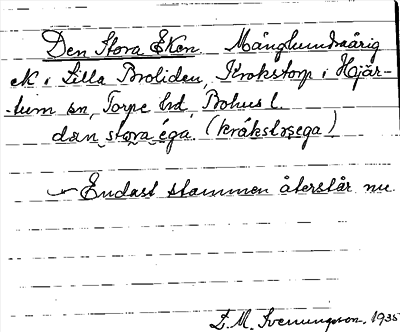 Den Stora Eken Månghundraårig
ek i Lilla Broliden, Krokstorp i Hjär-
tum sn, Torpe hd, Bohusl.
dæn stora éga. (kråkstorsega)
Endast stammen återstår nu.
E. M. Svenungsson, 1935